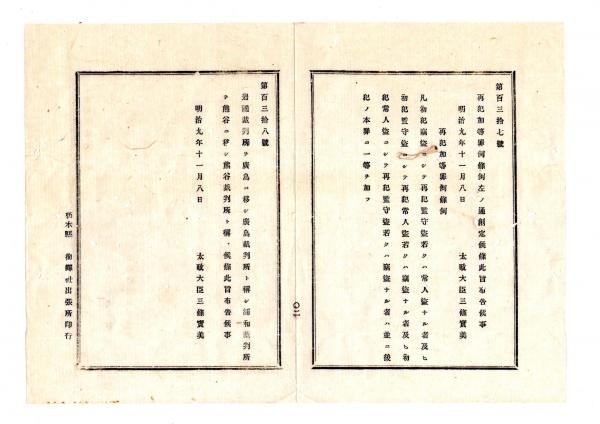 第百三拾七號
再犯加等罪例條例左ノ通創定候條此旨布告候事
明治九年十一月八日
太政大臣三條實美
再犯加等罪例條例
凡初犯竊盗ニシテ再犯監守盗若クハ常人盗ナル者及ヒ
初犯監守盗ニシテ再犯常人盗若クハ竊盗ナル者及ヒ初
犯常人盗ニシテ再犯監守盗若クハ竊盗ナル者ハ並ニ後
犯ノ本罪ニ一等ヲ加フ
〇二一
第百三拾八號
岩國裁判所ヲ廣島ニ移シ廣島裁判所ト稱シ浦和裁判所
ヲ熊谷ニ移シ熊谷裁判所ト稱シ候條此旨布告候事
明治九年十一月八日
太政大臣三條實美
栃木縣
社出張所印行